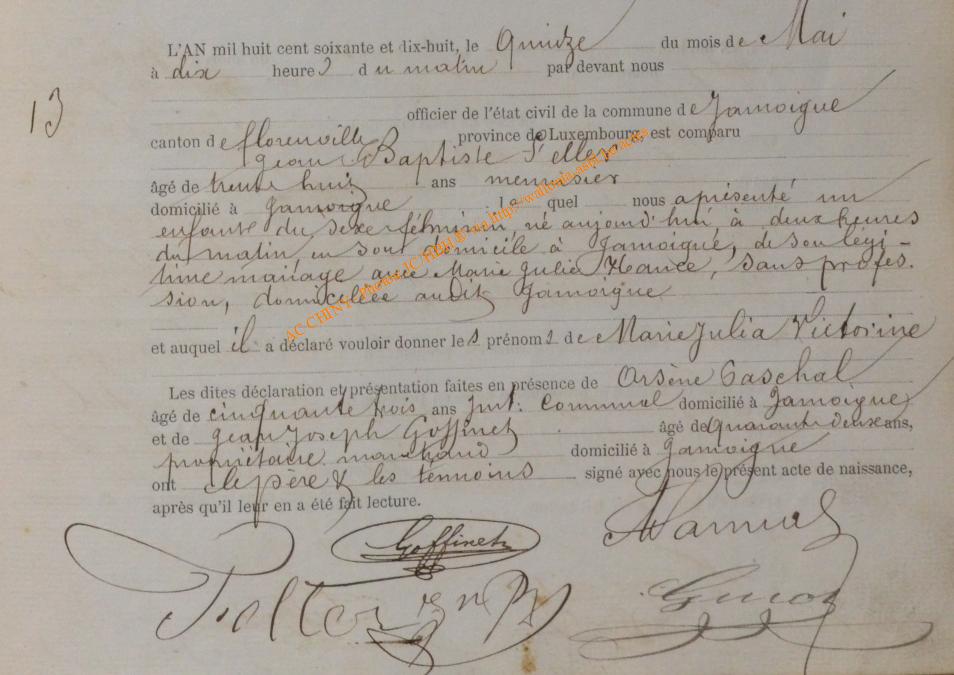 L'AN mil huit cent soixante et dix-huit, le Quinze du mois de Mai
à dix heures du matin par devant nous
officier de l'état civil de la commune de Jamoigne
13
canton de florenville province de Luxembourg, est comparu
Jean Baptiste
âgé de trente huit ans menuisier
domicilié à Jamoigne lequel nous a présenté un
enfant du sexe féminin, né aujourd'hui à deux heures
du matin en son domicile à Jamoigne, de son légi-
time mariage avec Marie Julie Hance, sans profes-
sion, domiciliée audit Jamoigne
AC CHINY
et auquel il a déclaré vouloir donner les prénoms de Marie Julia Victorine
Les dites déclaration et présentation faites en présence de Arsène Paschal
âgé de cinquante trois ans Inst. Communal domicilié à Jamoigne
et de Jean Joseph Goffinet âgé de quarante deux ans,
propriétaire marchand domicilié à Jamoigne
ont le père & les témoins signé avec nous le présent acte de naissance,
après qu'il leur en a été fait lecture.
Goffinet